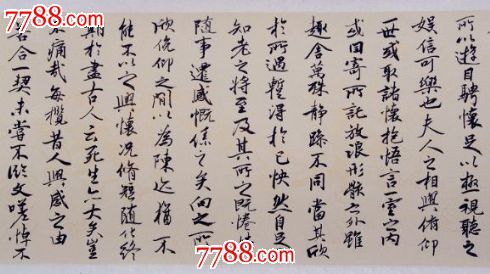 所以遊目騁懷足以極視聽之
娱信可樂也夫人之相與俯仰
一世或取諸懷抱悟言一室之内
或因寄所託放浪形骸之外雖
趣舍萬殊静躁不同當其欣
於所遇暫得於己快然自足
知老之將至及其所之既惓情
隨事遷感慨係之矣向之所
欣俛仰之間以為陳迹猶不
能不以之興懷況脩短隨化終
期於盡古人云死生亦大矣豈
不痛哉每攬昔人興感之由
若合一契未嘗不臨文嗟悼不
7788.com
7788.com
7788.com
7788.com